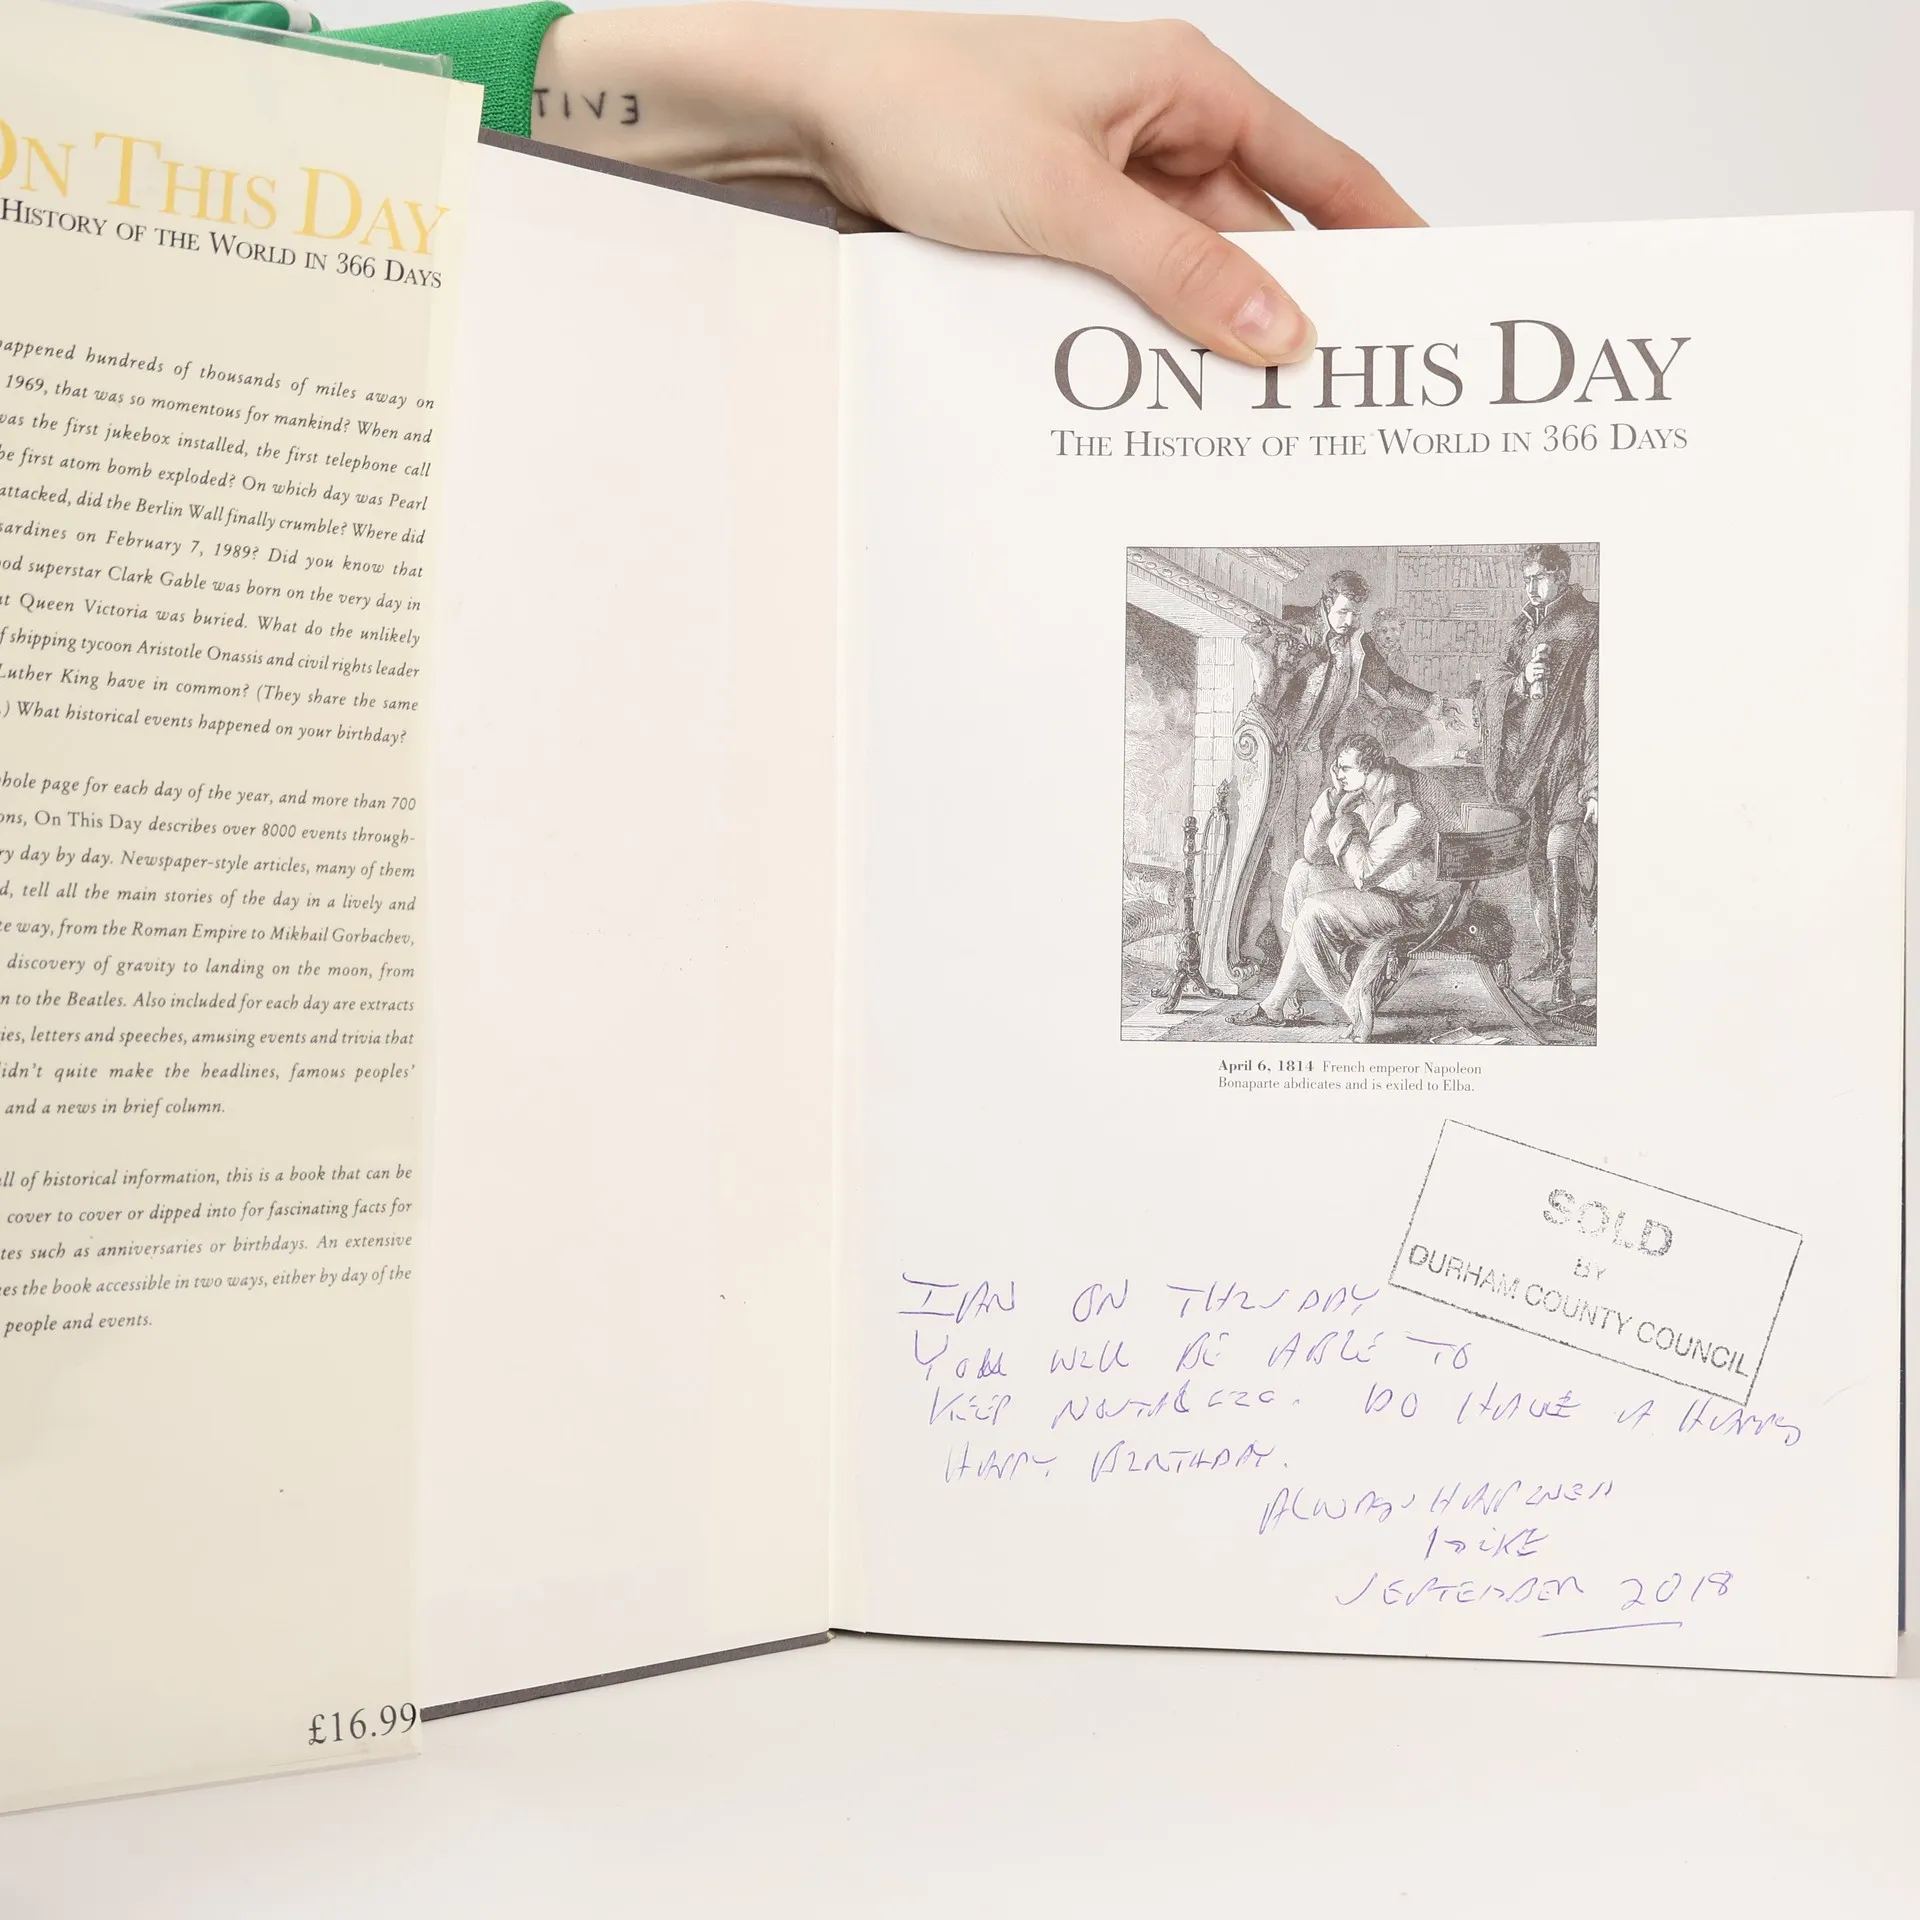 EVIT
ON THIS DAY
HISTORY OF THE WORLD IN 366 DAYS
happened hundreds of thousands of miles away on
1969, that was so momentous for mankind? When and
was the first jukebox installed, the first telephone call
the first atom bomb exploded? On which day was Pearl
attacked, did the Berlin Wall finally crumble? Where did
sardines on February 7, 1989? Did you know that
superstar Clark Gable was born on the very day in
Queen Victoria was buried. What do the unlikely
shipping tycoon Aristotle Onassis and civil rights leader
Luther King have in common? (They share the same
.) What historical events happened on your birthday?
whole page for each day of the year, and more than 700
ons, On This Day describes over 8000 events through-
day by day. Newspaper-style articles, many of them
tell all the main stories of the day in a lively and
way, from the Roman Empire to Mikhail Gorbachev,
discovery of gravity to landing on the moon, from
to the Beatles. Also included for each day are extracts
letters and speeches, amusing events and trivia that
didn't quite make the headlines, famous peoples'
and a news in brief column.
of historical information, this is a book that can be
cover to cover or dipped into for fascinating facts for
such as anniversaries or birthdays. An extensive
the book accessible in two ways, either by day of the
people and events.
£16.99
ON THIS DAY
THE HISTORY OF THE WORLD IN 366 DAYS
April 6, 1814 French emperor Napoleon
Bonaparte abdicates and is exiled to Elba.
SOLD
BY
DURHAM COUNTY COUNCIL
IAN ON THIS DAY
YOU WILL BE ABLE TO
KEEP NOSTALGIC. DO HAVE A HAPPY
HAPPY BIRTHDAY.
ALWAYS HAPPINESS
MIKE
SEPTEMBER 2018